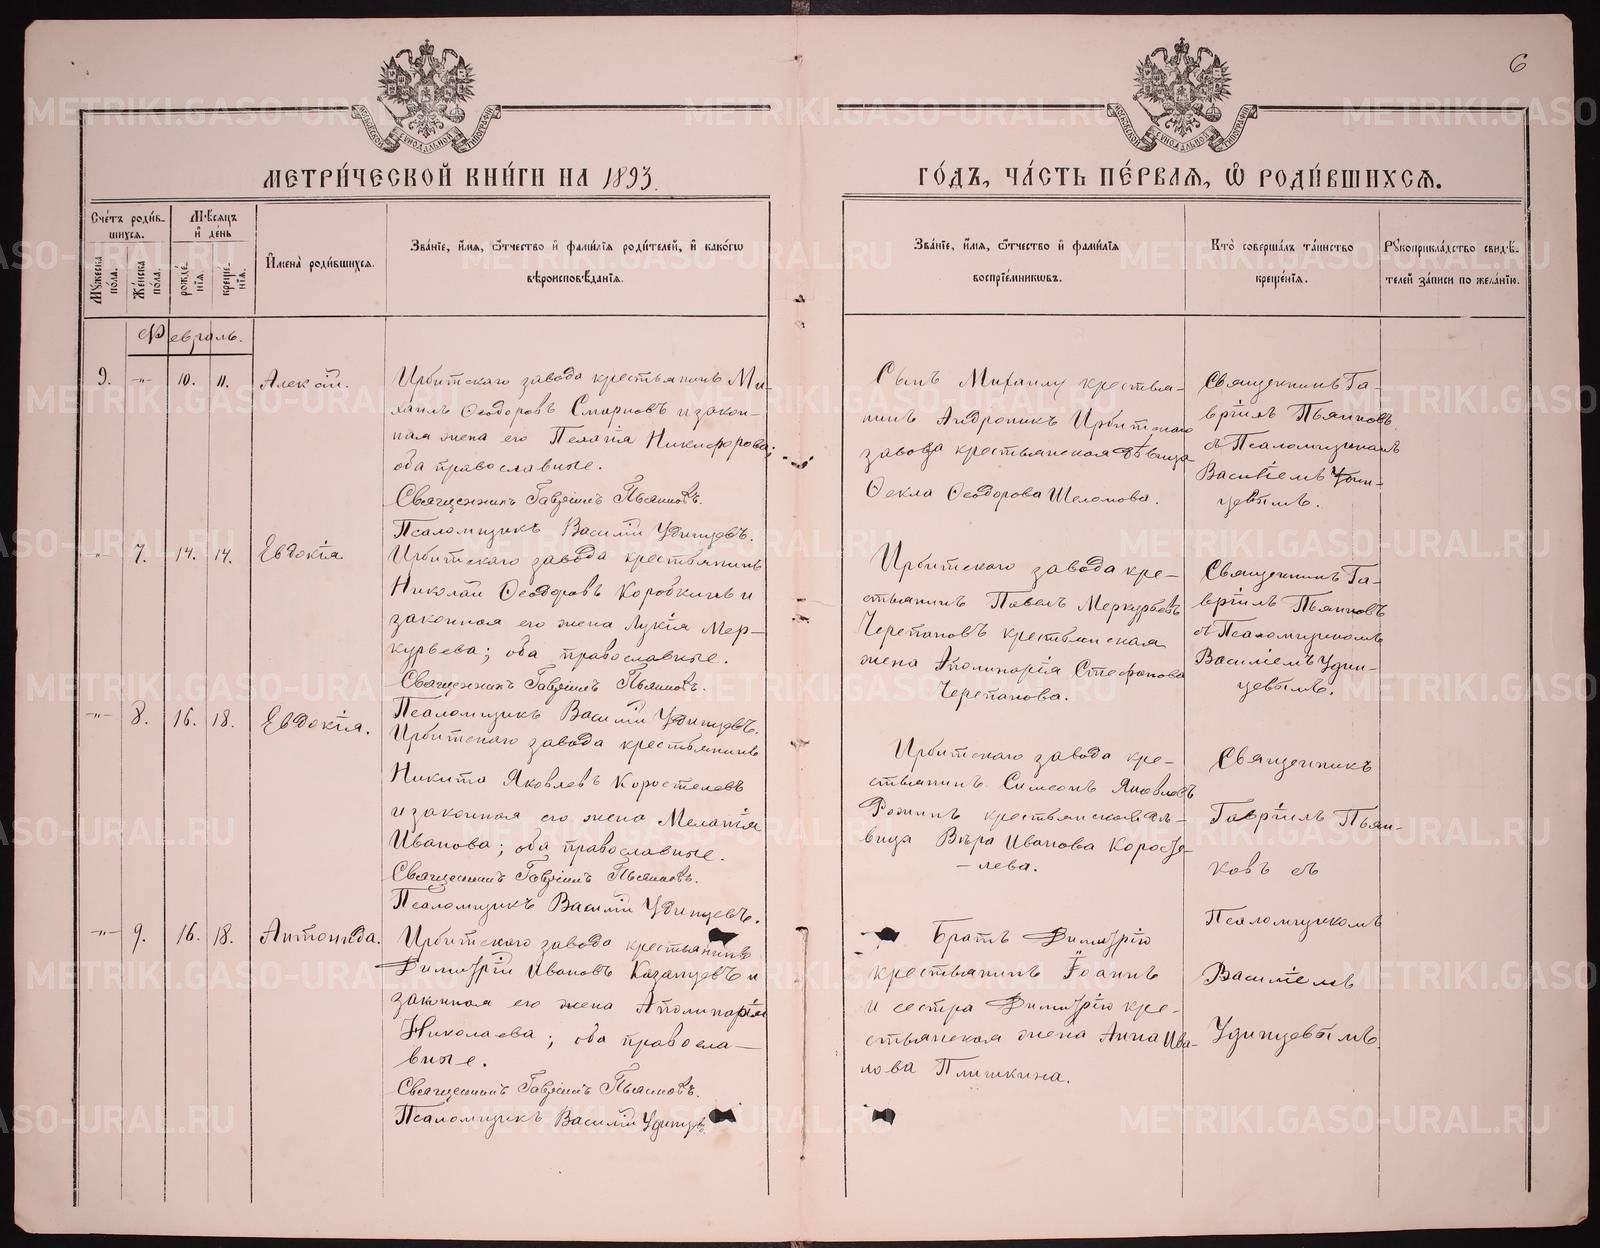 6
МЕТРИ́ЧЕСКОЙ КНИ́ГИ НА 1893.
ГО́ДЪ, ЧА́СТЬ ПЕ́РВАЯ, Ѡ РОДИ́ВШИХСЯ.
Сче́тъ роди́в-
шихся.
Му́жеска по́ла.
Же́нска по́ла.
Мѣ́сяцъ и҆ де́нь
рожде́-нїя.
креще́-нїя.
И҆мена̀ роди́вшихся.
Зва́нїе, и҆́мя, ѻ҆́тчество и҆ фами́лїя роди́телей, и҆ како́гѡ
вѣроисповѣ́данїя.
Зва́нїе, и҆́мя, ѻ҆́тчество и҆ фами́лїя
воспрїе́мникѡвъ.
Кто̀ соверша́лъ та́инство
креще́нїя.
Рꙋкоприкла́дство свидѣ́-
телей за́писи по жела́нїю.
Февраль.
9. -"- 10. 11. Алексѣй.
Ирбитскаго завода крестьянинъ Ми-
хаилъ Ѳеодоровъ Смарновъ и закон-
ная жена его Пелагія Никифорова;
оба православные.
Священникъ Гавріилъ Пьянковъ.
Псаломщикъ Василій Удинцевъ.
Сынъ Михаилу крестья-
нинъ Андроникъ Ирбитскаго
завода крестьянская дѣвица
Ѳекла Ѳеодорова Шеломова.
Священникъ Га-
вріилъ Пьянковъ
съ Псаломщикомъ
Василіемъ Удин-
цевымъ.
-"- 7. 14. 14. Евдокія.
Ирбитскаго завода крестьянинъ
Николай Ѳеодоровъ Коробкинъ и
законная его жена Лукія Мер-
курьева; оба православные.
Священникъ Гавріилъ Пьянковъ.
Псаломщикъ Василій Удинцевъ.
Ирбитскаго завода кре-
стьянинъ Павелъ Меркурьевъ
Черепановъ крестьянская
жена Аполинарія Стефанова
Черепанова.
Священникъ Га-
вріилъ Пьянковъ
съ Псаломщикомъ
Василіемъ Удин-
цевымъ.
-"- 8. 16. 18. Евдокія.
Ирбитскаго завода крестьянинъ
Никита Яковлевъ Коростелевъ
и законная его жена Меланія
Иванова; оба православные.
Священникъ Гавріилъ Пьянковъ.
Псаломщикъ Василій Удинцевъ.
Ирбитскаго завода кре-
стьянинъ Симеонъ Яковлевъ
Рожинъ крестьянская дѣ-
вица Вѣра Иванова Коросте-
-лева.
Священникъ
Гавріилъ Пьян-
ковъ съ
Псаломщикомъ
Василіемъ
Удинцевымъ.
-"- 9. 16. 18. Антонида.
Ирбитскаго завода крестьянинъ
Димитрій Ивановъ Казанцевъ и
законная его жена Аполинарія
Николаева; оба правосла-
вные.
Священникъ Гавріилъ Пьянковъ.
Псаломщикъ Василій Удинцевъ.
Братъ Димитрію
крестьянинъ Іоаннъ
и сестра Димитрію кре-
стьянская жена Анна Ива-
нова Плишкина.